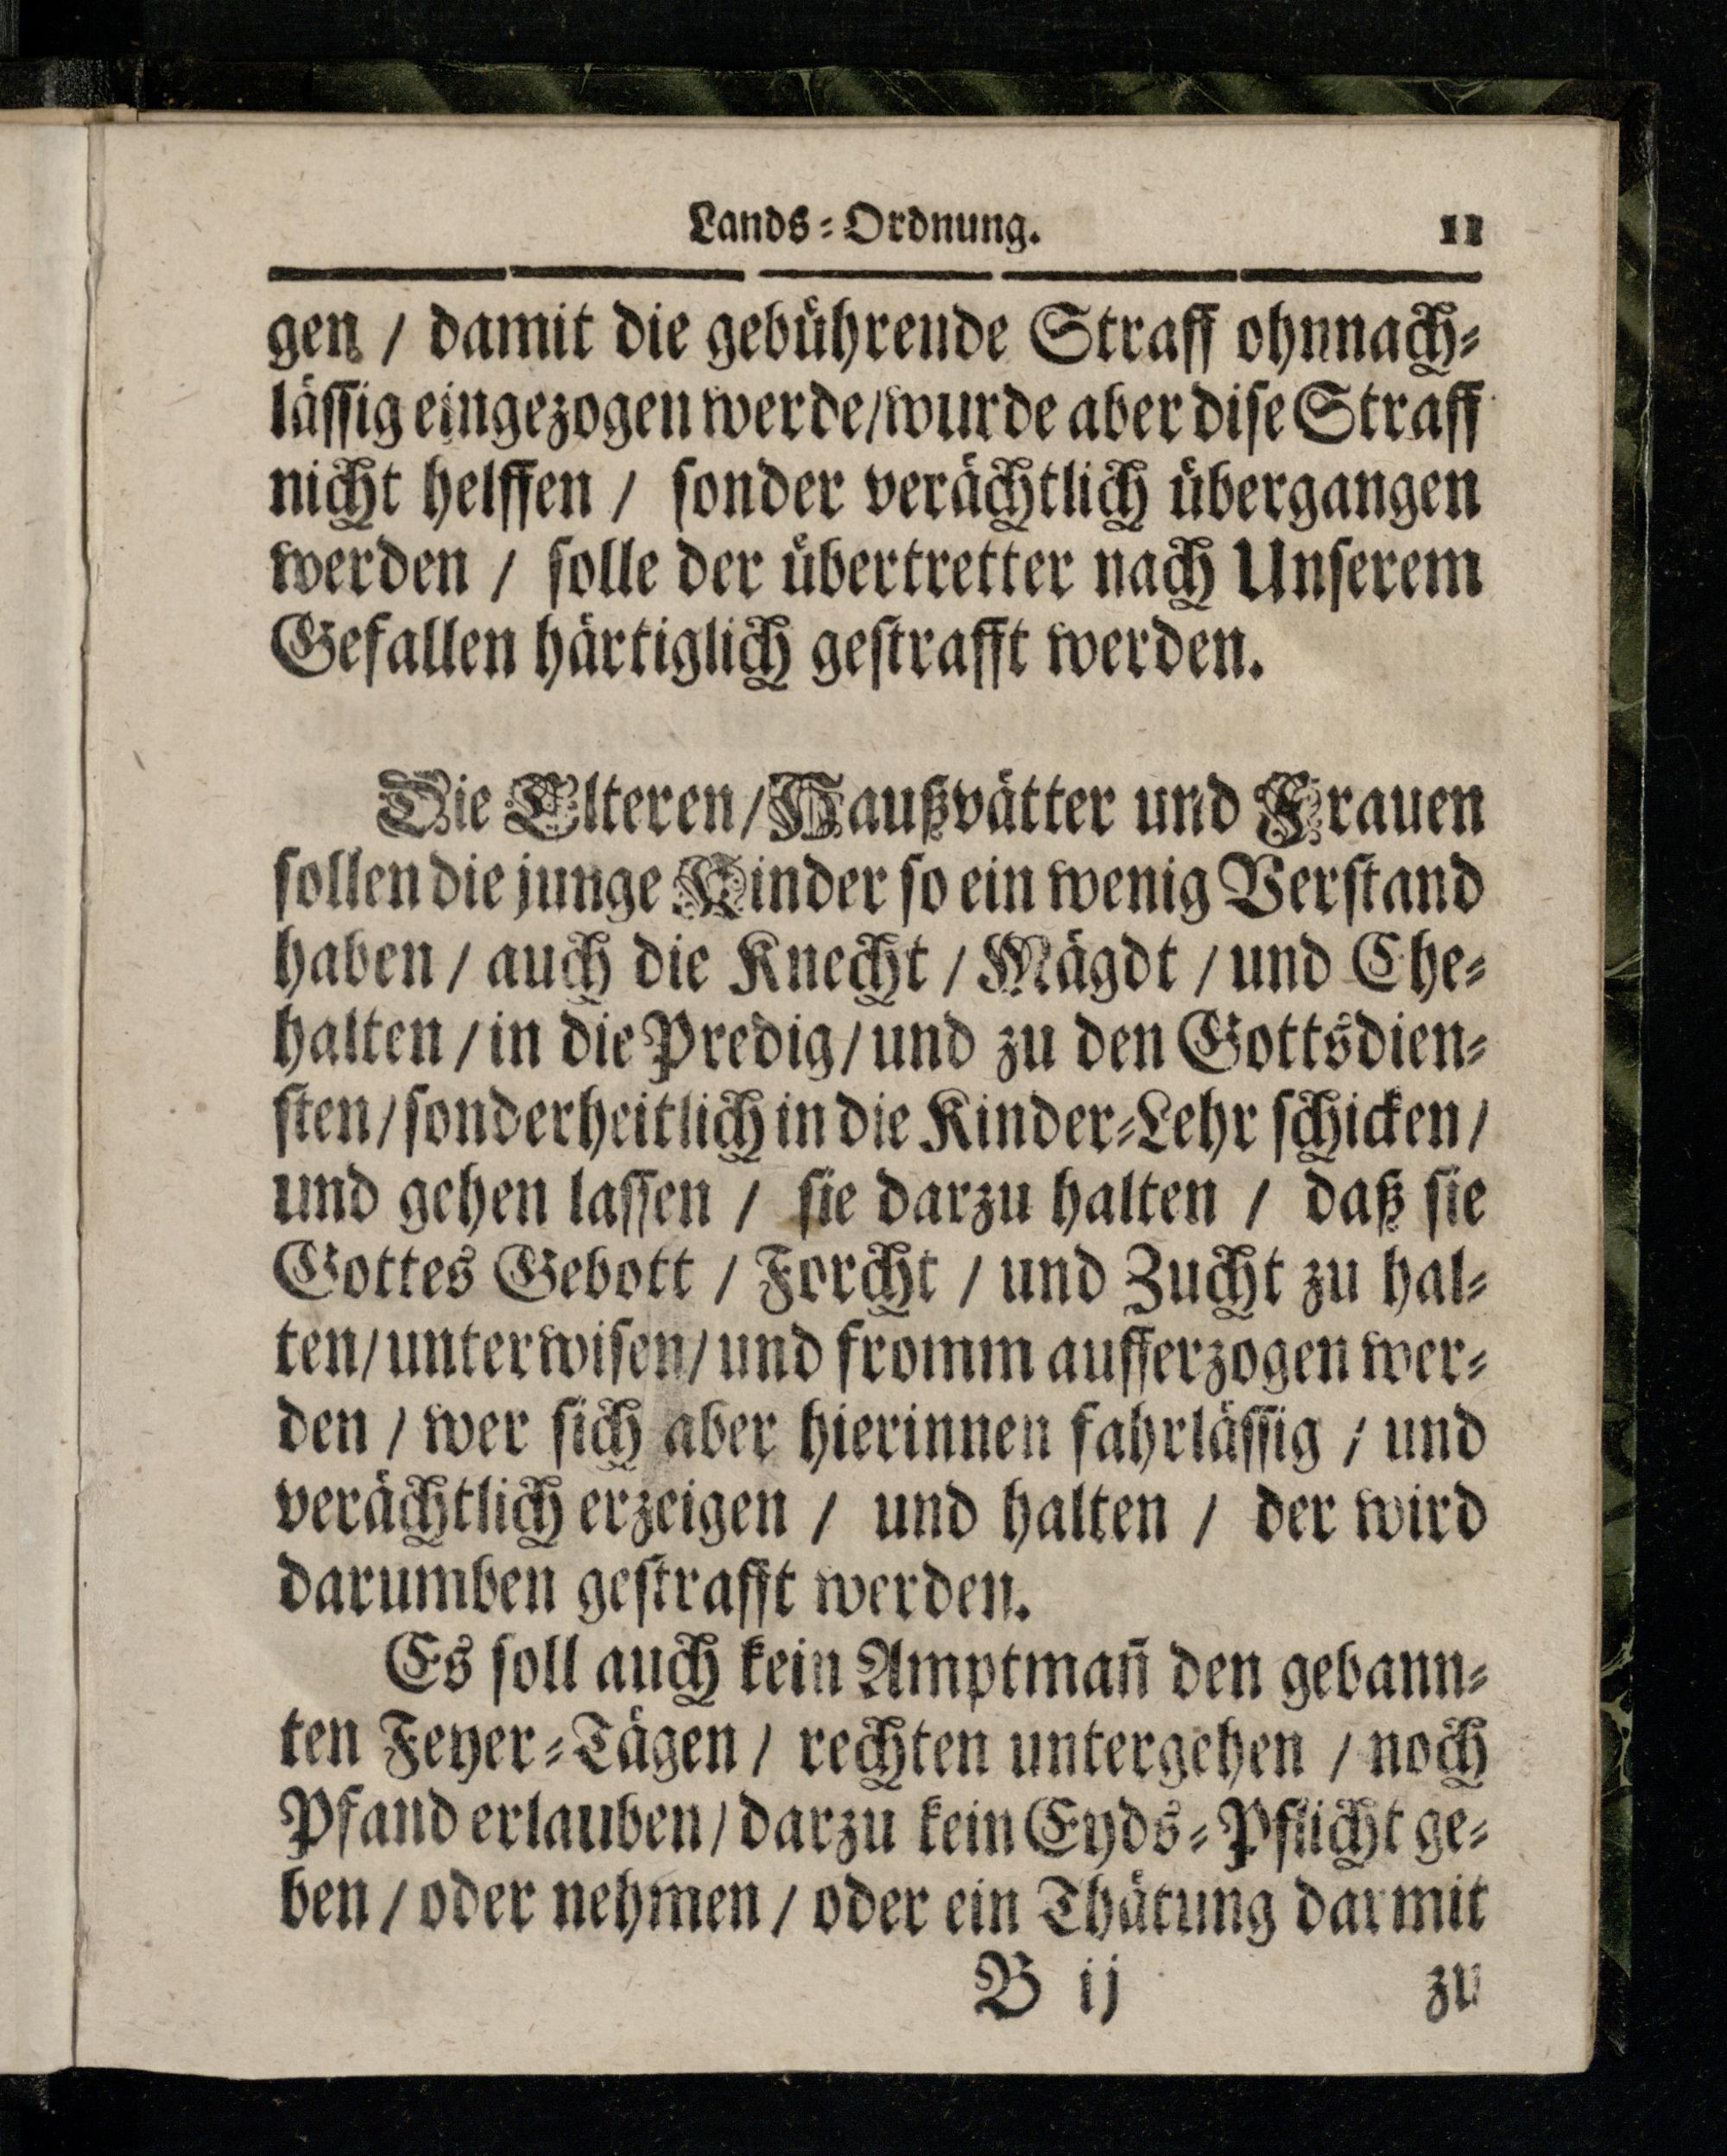 Lands-Ordnung. 11
gen / damit die gebührende Straff ohnnach-
lässig eingezogen werde/wurde aber dise Straff
nicht helffen / sonder verächtlich übergangen
werden / solle der übertretter nach Unserem
Gefallen härtiglich gestrafft werden.
Die Elteren/Haußvätter und Frauen
sollen die junge Kinder so ein wenig Verstand
haben / auch die Knecht / Mägdt / und Ehe-
halten / in die Predig/ und zu den Gottsdien-
sten/ sonderheitlich in die Kinder-Lehr schicken/
und gehen lassen / sie darzu halten / daß sie
Gottes Gebott / Forcht / und Zucht zu hal-
ten/ unterwisen/ und fromm aufferzogen wer-
den / wer sich aber hierinnen fahrlässig / und
verächtlich erzeigen / und halten / der wird
darumben gestrafft werden.
Es soll auch kein Amptman̄ den gebann-
ten Feyer-Tägen / rechten untergehen / noch
Pfand erlauben/ darzu kein Eyds-Pflicht ge-
ben / oder nehmen / oder ein Thätung darmit
B ij zu